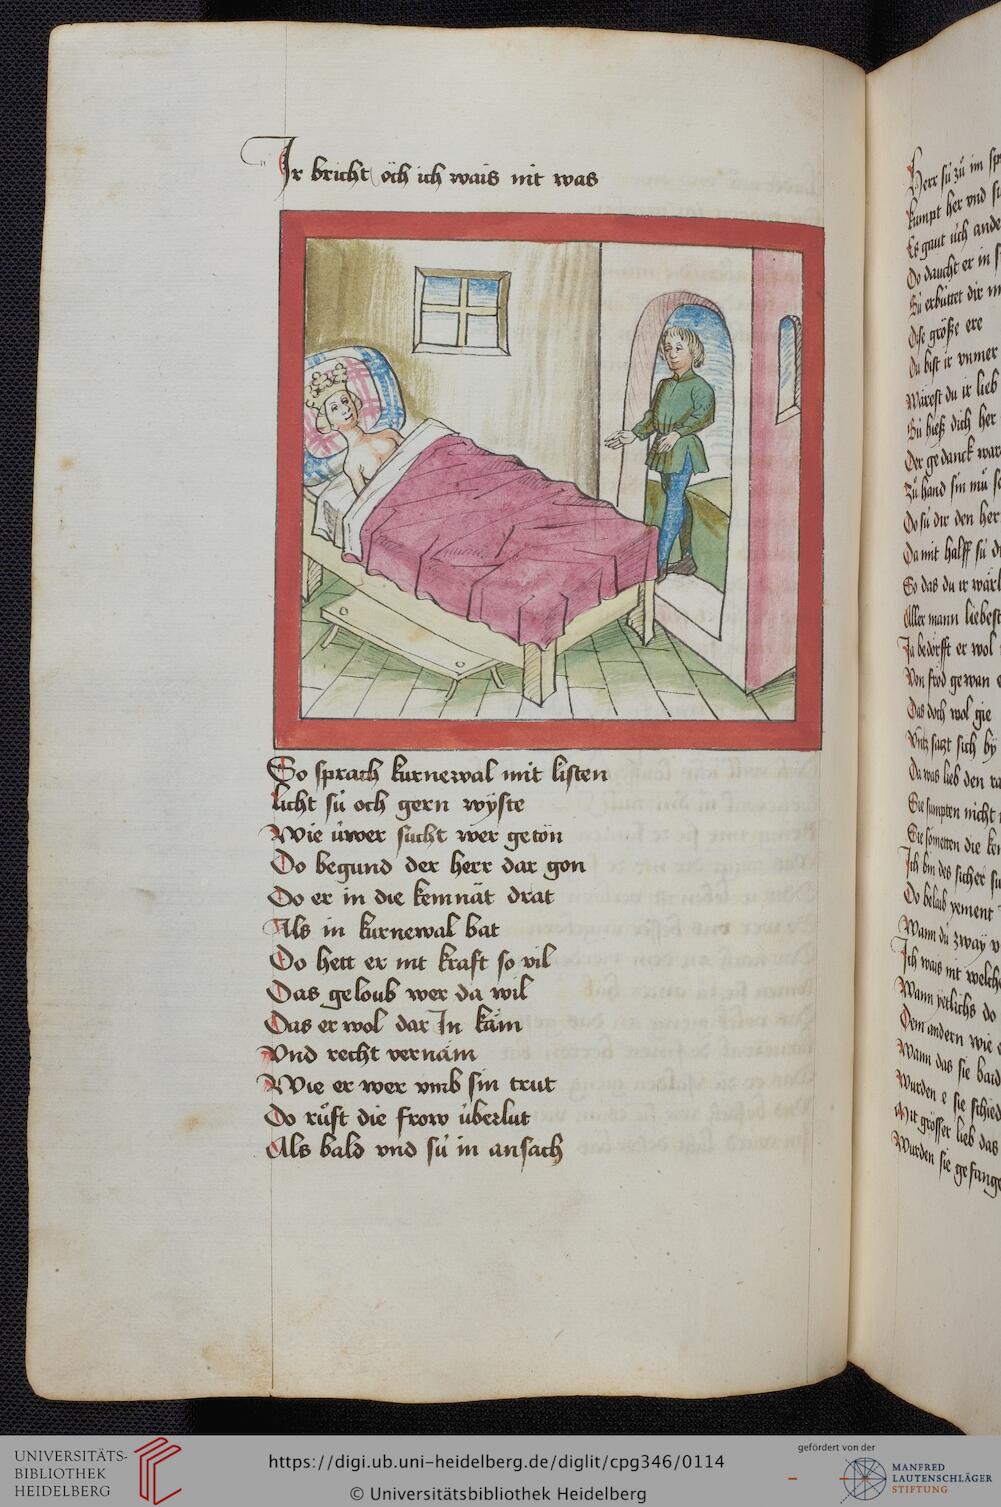 Ir bricht öch ich wais nit was
So sprach kurnewal mit listen
licht sú och gern wýste
Wie úwer sucht wer getön
Do begund der herr dar gon
Do er in die kemnät drat
Als in kurnewal bat
Do hett er nit kraft so vil
Das geloub wer da wil
Das er wol dar In käm
Vnd recht vernäm
Wie er wer vmb sin trut
Do rúft die frow úberlut
Als bald vnd sú in ansach
Herr sú zů im
kumpt her vnd
Es gaut úch
Do daucht er in
Sú erbúttet dir
Dise größe ere
Du bist ir ymmer
Wärest du ir lieb
Sú hieß dich her
Der gedanck
Zů hand sin
Do sú dir den her
Da mit halff sú
So das du ir
Aller mann liebest
Ja bedörfft er wol
Von fröd gewan
Das doch wol gie
Vntz satzt sich by
Da was lieb den
Sie sumpten nicht
Sie
Ich bin des sicher
Do belaib yement
Wann da zway
Ich wais nit welch
Wann yetlichs do
Dem andern wie
Wann das sie bald
Wurden e sie
Mit grösser lieb das
Wurden sie gefange
UNIVERSITÄTS-
BIBLIOTHEK
HEIDELBERG
https://digi.ub.uni-heidelberg.de/diglit/cpg346/0114
© Universitätsbibliothek Heidelberg
gefördert von der
MANFRED
LAUTENSCHLÄGER
STIFTUNG